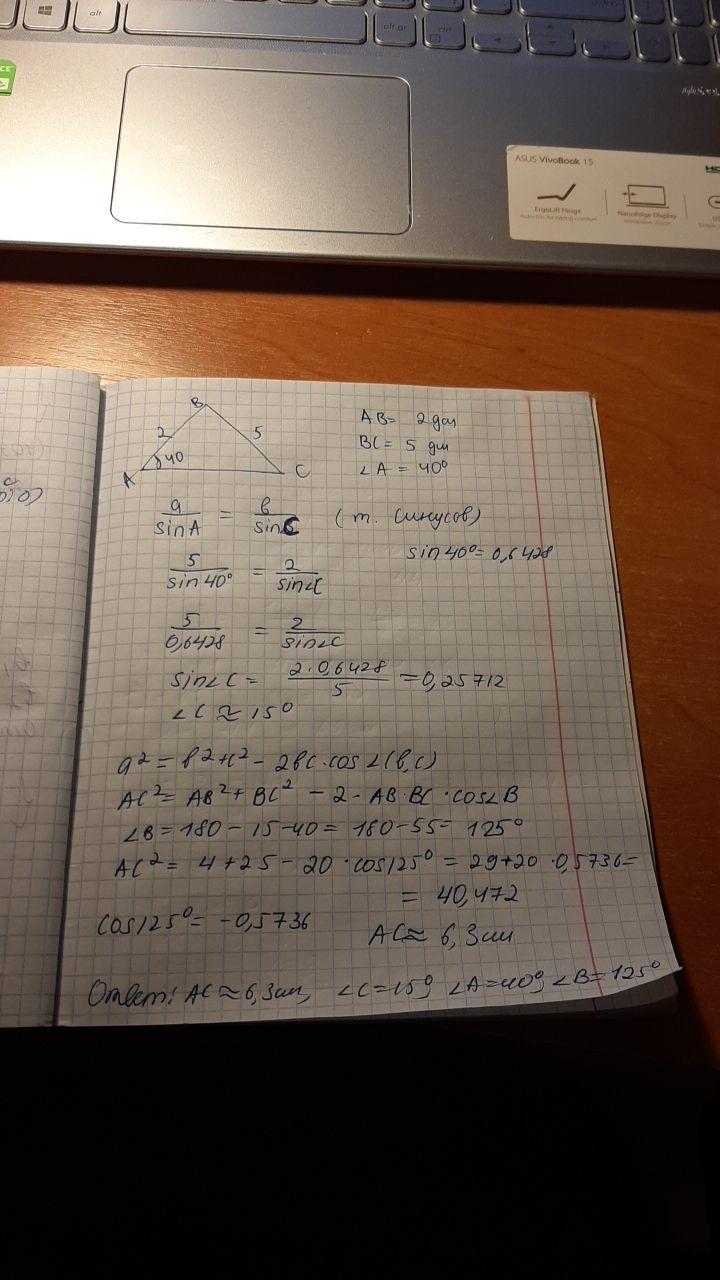 alt
alt gr
ctrl
ASUS VivoBook 15
ErgoLift Hinge
NanoEdge Display
B
2
5
40
A
C
AB= 2 дм
BC= 5 дм
∠A = 40°
a/sinA = b/sinC (т. синусов)
sin40°= 0,6428
5/sin40° = 2/sin∠C
5/0,6428 = 2/sin∠C
sin∠C = 2·0,6428/5 = 0,25712
∠C ≈ 15°
a² = b²+c² - 2bc·cos∠(b,c)
AC²= AB²+ BC² - 2·AB·BC·cos∠B
∠B= 180 - 15 - 40 = 180-55= 125°
AC²= 4+25 - 20·cos125° = 29+20·0,5736=
= 40,472
cos125°= -0,5736
AC≈ 6,3см
Ответ: AC≈6,3см, ∠C=15°, ∠A=40°, ∠B=125°